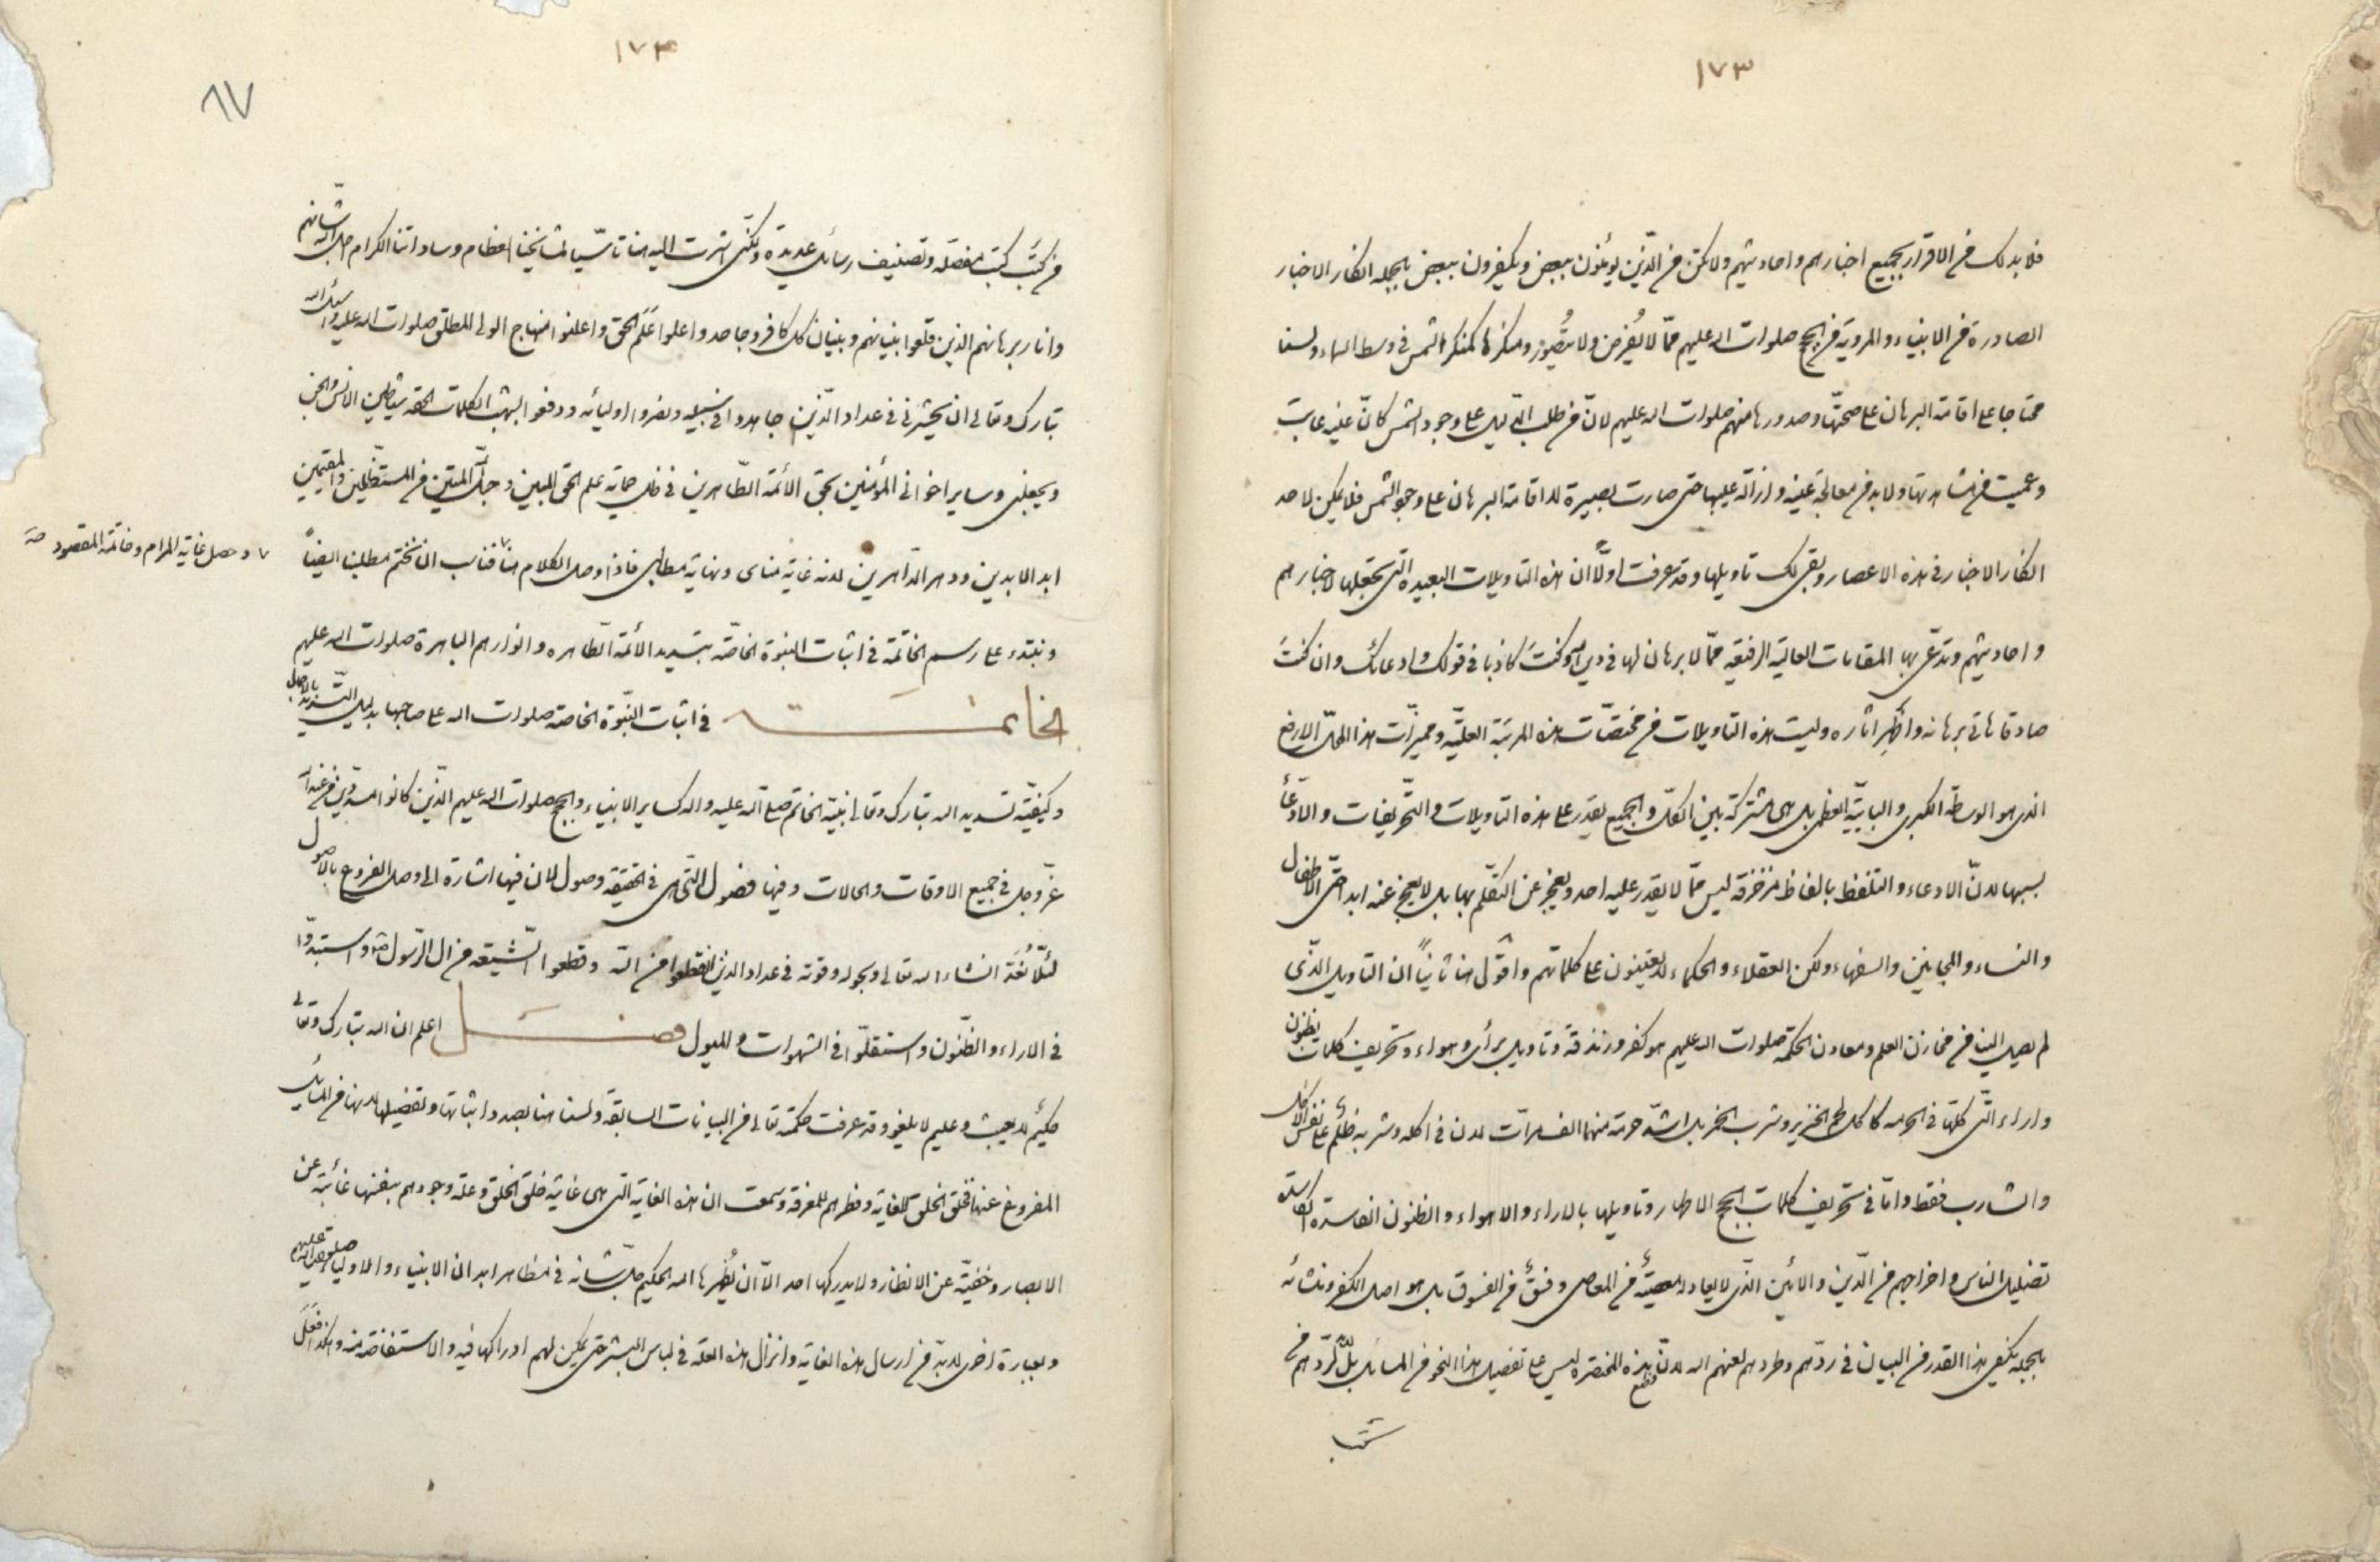 ١٧٣
فلا بد لك من الاقرار بجميع اخبارهم واحاديثهم ولا تكن من الذين يؤمنون ببعض ويكفرون ببعض بالجمله انكار الاخبار
الصادرة من الانبياء والمروية من الحجج صلوات الله عليهم ممّا لا يُفرض ولا يتصوّر ومنكرها كمنكر الشمس في وسط السماء ولسنا
محتاجا على اقامة البرهان على صحتها وصدورها منهم صلوات الله عليهم لانّ من طلب الدّليل على وجود الشمس كانّ عينه عابت
وعميت من مشاهدتها ولا بد من معالجة عينه وازالة عليها حتى صارت بصيرة لا اقامة البرهان على وجود الشمس فلا يمكن لاحد
انكار الاخبار في هذه الاعصار وبقى لك تاويلها وقد عرفت اوّلاً ان هذه التاويلات البعيدة التى تجعلها لاخبارهم
واحاديثهم وتدّعى بها المقامات العالية الرفيعه ممّا لا برهان لها في دين الله وكنتَ كاذبا في قولك وادعائك وان كنتَ
صادقا هات برهانه واظهر اثاره وليت هذه التاويلات من مختصّات هذه المرتبة العليّه ومميزّات هذا المحلّ الارفع
الذى هو الوسطة الكبرى والبابيّة العظمى بل هى مشتركة بين الكلّ والجميع يقدر على هذه التاويلات والتّحريفات والادّعاء
بسببها لانّ الادعاء والتلفظ بالفاظ مزخرفة ليس ممّا لا يقدر عليه احد ويعجز عن التكلّم بها بل لا يعجز عنه ابدا حتّى الاطفال
والنساء والمجانين والسفهاء ولكن العقلاء والحكماء لا يعتنون على كلماتهم واقول هنا ثانياً ان التاويل الذّى
لم يصل الينا من مخازن العلم ومعادن الحكمة صلوات الله عليهم هو كفر وزندقة وتاويل برأى وهواء وتحريف كلمات بظنون
واراء التّى كلتها في الحرمه كاكل لحم الخنزير وشرب الخمر بل اشدّ حرمة منهما الف مرّات لان في اكله وشربه ظلم على نفس الاكل
والشارب فقط وامّا في تحريف كلمات الحجج الاطهار وتاويلها بالاراء والاهواء والظنون الفاسدة الكاسدة
تضليل الناس واخراجهم من الدّين والائين الذّى لا يعادله معصيةٌ من المعاصى وفسقٌ من الفسوق بل هو اصل الكفر ونشائه
بالجمله يكفى هذا القدر من البيان في ردّهم وطردهم لعنهم الله لانّ وضع هذه المختصره ليس على تفصيل هذا النحو من المسائل بل لابدّ لردّهم من
كتب
١٧٤
٨٧
من كَتب كتب مفصّله وتصنيف رسائل عديدة ولكنّى اشرت اليه هنا تاسّيا لمشايخنا العظام وساداتنا الكرام اجلّ الله شانهم
وانار برهانهم الذين قلعوا بنيانهم وبنيان كل كافر وجاحد واعلوا عَلَم الحق واعلنوا منهاج الولى المطلق صلوات الله عليه واسئل الله
تبارك وتعالى ان يحشرنى في عداد الذّين جاهدوا في سبيله ونصروا اوليائه ودفعوا بشهب الكلمات الحقه شياطين الانس والجن
ويجعلنى وساير اخوانى المؤمنين بحق الأئمه الطّاهرين في ظل حماية علم الحق المبين وحبل الله المتين من المستظلين والمعتصمين
ابد الابدين ودهر الدّاهرين لانه غاية مناى ونهاية مطلبى فاذا وصل الكلام هنا فناسب ان نختم مطلبنا ايضاً
٧ وحصل غاية المرام وخاتمة المقصود صح
ونبتدء على رسم الخاتمة في اثبات النبوة الخاصّه بتسديد الأئمه الطّاهره وانوارهم الباهرة صلوات الله عليهم
الخاتمة في اثبات النّبوة الخاصة صلوات الله على صاحبها بدليل التّسديد بالاجمال
وكيفيّة تسديد الله تبارك وتعالى نبيّه الخاتم صلى الله عليه واله كساير الانبياء والحجج صلوات الله عليهم الذّين كانوا مسدّدين من عند الله
عزّ وجل في جميع الاوقات والحالات وفيها فصول التّى هى في الحقيقة وصول لان فيها اشارة الى وصل الفروع بالاصول
لئلّا نُعَدّ انشاء الله تعالى وبحوله وقوته في عداد الذين انقطعوا من الله وقطعوا الشّيعه من ال الرّسول ص واستبدّوا
في الاراء والظّنون واستقلّوا في الشهوات والميول فصل اعلم ان الله تبارك وتعالى
حكيمٌ لا يعبث وعليم لا يلغو وقد عرفت حكمته تعالى من البيانات السابقة ولسنا هنا بصدد اثباتها وتفصيلها لانها من المسائل
المفروغ عنها فخلق الخلق للغاية وفطرهم للمعرفة وسمعت ان هذه الغاية التى هى غاية خلق الخلق وعلة وجودهم بنفسها غائبة عن
الابصار وخفيّة عن الانظار ولا يدركها احد الّا ان يُظهرها الله الحكيم جلّ شانه في مظاهر ابدان الانبياء والاولياء صلوات الله عليهم
وبعبارة اخرى لابدّ من ارسال هذه الغاية وانزال هذه العلة في لباس البشر حتى يمكن لهم ادراكها فيه والاستفاضة منه وهكذا فَعَل